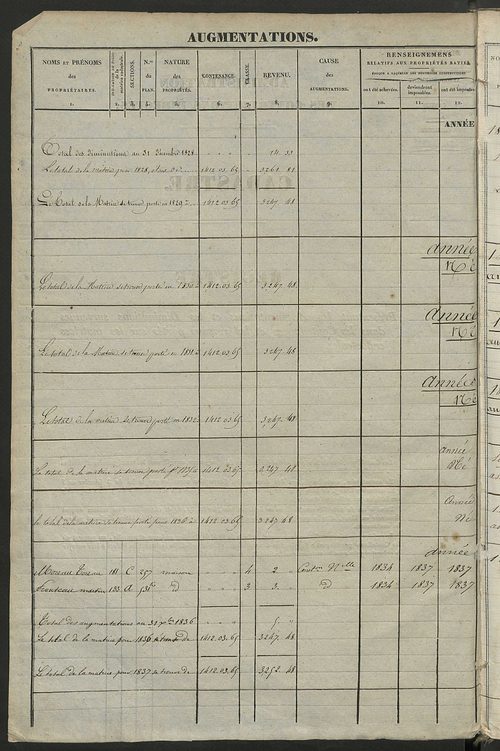 AUGMENTATIONS.
NOMS ET PRÉNOMS des PROPRIÉTAIRES. 1.
2.
3.
SECTIONS. 3.
N.os du PLAN. 4.
NATURE des PROPRIÉTÉS. 5.
CONTENANCE. 6.
CLASSE. 7.
REVENU. 8.
CAUSE des AUGMENTATIONS. 9.
RENSEIGNEMENS
RELATIFS AUX PROPRIÉTÉS BATIES
ont été achevées. 10.
deviendront imposables. 11.
ont été imposées 12.
ANNÉE
Total des diminutions au 31 Décembre 1828 14. 33
Le total de la matrice pour 1828, était de 1412.03.65 3261. 81
Le total de la Matrice de trouve porté en 1829 à 1412.03.65 3247. 48
Année
Né
Le total de la Matrice de trouve porté en 1830 à 1412.03.65 3247. 48
Année
Né
Le total de la Matrice de trouve porté en 1831 à 1412.03.65 3247. 48
Année
Né
Le total de la matrice de trouve porté en 1832 1412.03.65 3247. 48
Année
Né
Le total de la matrice de trouve porté 1412.03.65 3247. 48
Année
Né
Le total de la matrice de trouve porté pour 1836 à 1412.03.65 3247 48
Année
Moreau 181 C 257 maison 4 2 Const.on N.elle 1834 1837 1837
martin 133 A d 3 3 d 1834 1837 1837
Total des augmentations au 31 X.bre 1836 5
Le total de la matrice pour 1836 de 1412.03.65 3247. 48
Le total de la matrice pour 1837 de 1412.03.65 3252. 48